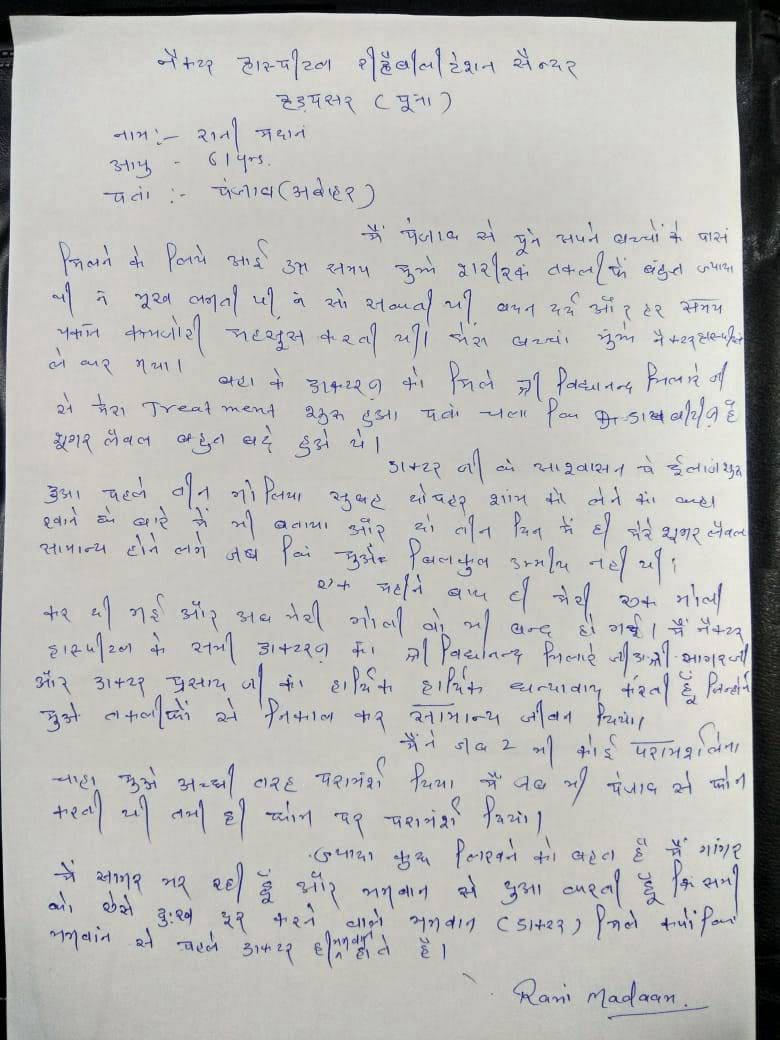 नैक्टर हास्पीटल रीहैबीलीटेशन सैन्टर
हड़पसर (पूना)
नाम :- रानी मदानं
आयु - 61 yrs.
पता :- पंजाब (अबोहर)
मैं पंजाब से पूने अपने बच्चों के पास
मिलने के लिये आई उस समय मुझे शारीरक तकलीफें बहुत ज्यादा
थी न भूख लगती थी न सो सकती थी बदन दर्द और हर समय
थकान कमजोरी महसूस करती थी। मेरा बच्चा मुझे नैक्टर हास्पीटल
ले कर गया।
वहा के डाक्टरज़ को मिले श्री विद्यानन्द जी
से मेरा Treatment शुरू हुआ पता चला कि डाबबीटीज़ है
शूगर लैवल बहुत बढ़े हुओ थे।
डाक्टर जी के आशवासन पे ईलाज शुरू
हुआ पहले तीन गोलिया सुबह दोपहर शाम को लेने का कहा
खाने के बारे में भी बताया और दो तीन दिन में ही मेरे शूगर लैवल
सामान्य होने लगे जब कि मुझे बिलकुल उम्मीद नही थी।
एक महीने बाद ही मेरी एक गोली
कर दी गई और अब मेरी गोली वो भी बन्द हो गई। मैं नैक्टर
हास्पीटल के सभी डाक्टरज़ का श्री विद्यानन्द जी श्री सागर जी
और डाक्टर प्रसाद जी का हार्दिक हार्दिक धन्यावाद करती हूँ जिन्होंने
मुझे तकलीफों से निकाल कर सामान्य जीवन दिया।
मैंने जब 2 भी कोई परामर्श लेना
चाहा मुझे अच्छी तरह परामर्श दिया मैं जब भी पंजाब से फोन
करती थी तभी ही फोन पर परामर्श दिया।
ज्यादा कुछ लिखने को बहुत है मैं गागर
में सागर भर रही हूँ और भगवान से दुआ करती हूँ कि सभी
को ऐसे दु:ख दूर करने वाले भगवान (डाक्टर) मिले क्योंकि
भगवान से पहले डाक्टर ही भगवान होते है।
Rani Madaan.